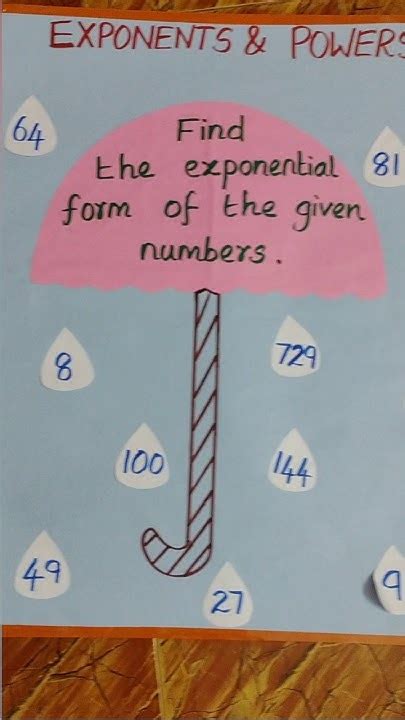 EXPONENTS & POWERS
64
Find
81
the exponential
form of the given
numbers.
8
729
100
144
49
27
9